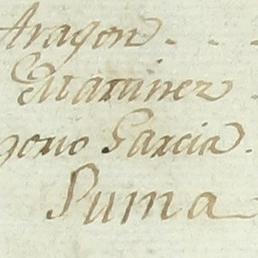 Aragon
Martinez
gorio Garcia.
Puma